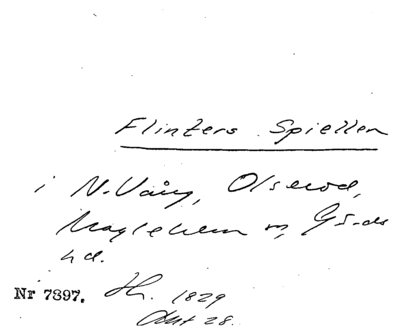 Flinters Spiellen
i N. Våry, Olserod,
Maglehem sn, Gärds
hd.
Nr 7397. Hh. 1829
Aut 28.